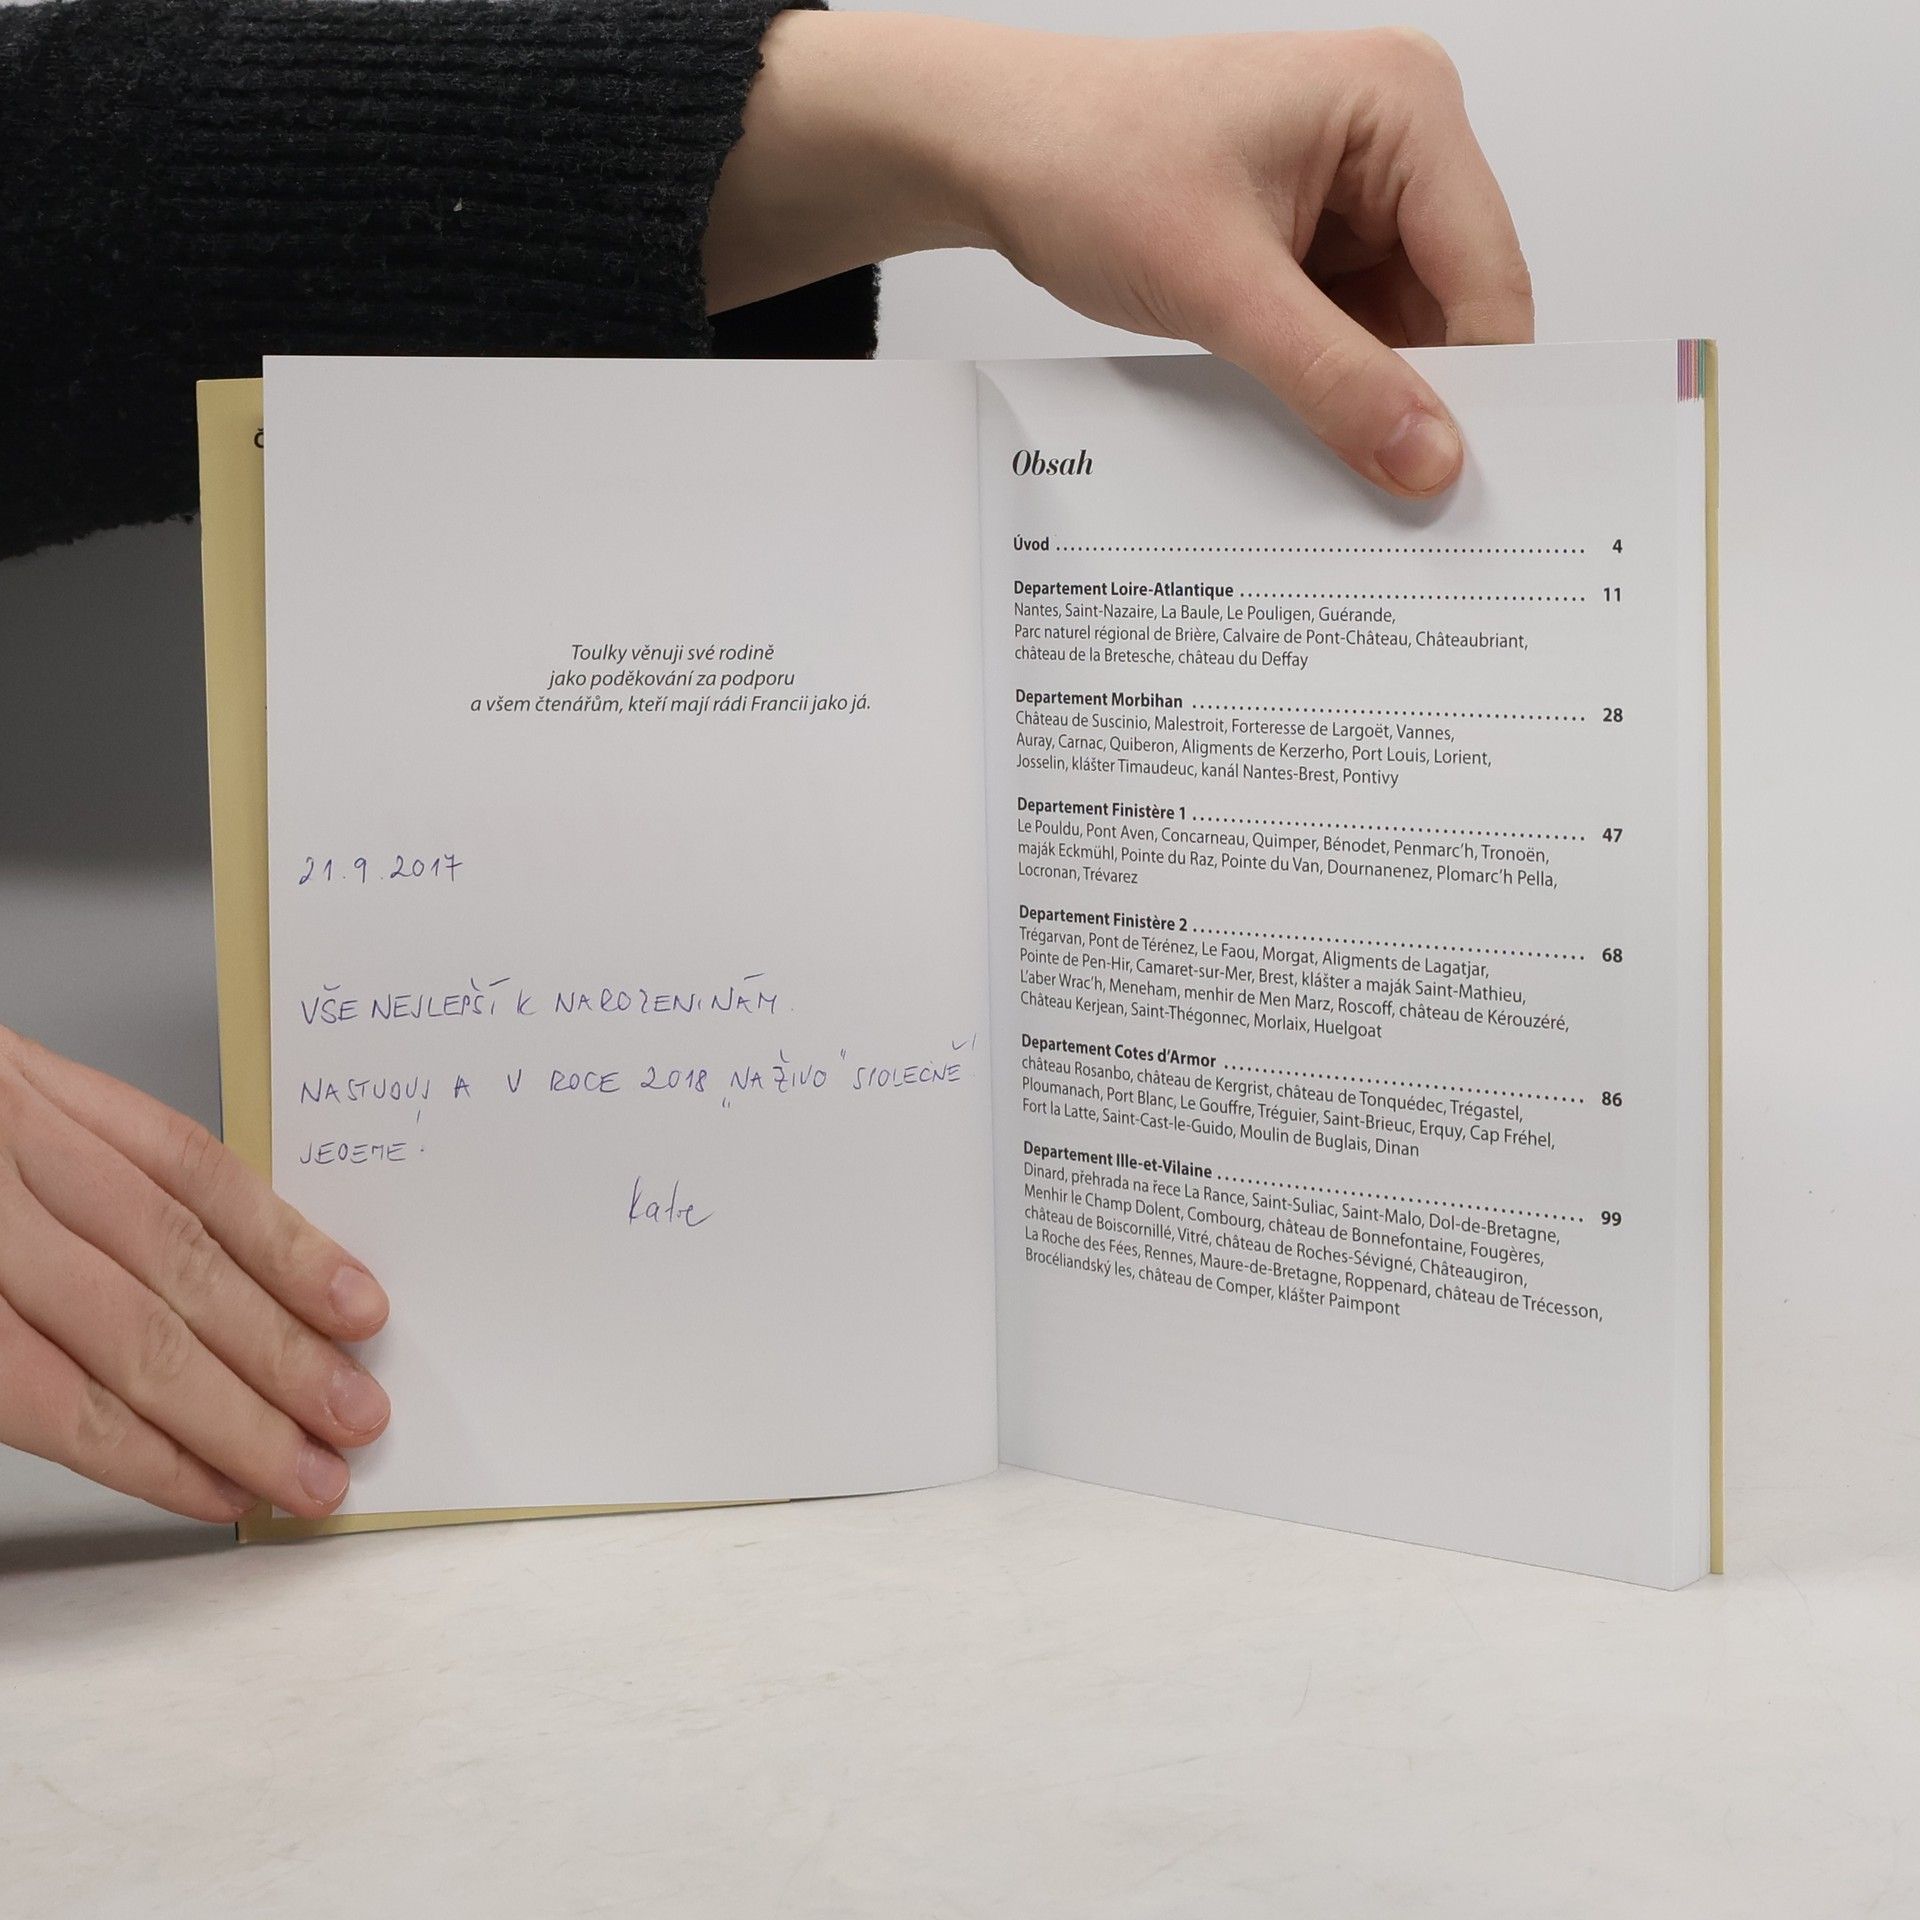 Č
Toulky věnuji své rodině
jako poděkování za podporu
a všem čtenářům, kteří mají rádi Francii jako já.
21.9.2017
VŠE NEJLEPŠÍ K NAROZENINÁM.
NASTUDUJ A V ROCE 2018 „NAŽIVO" SPOLEČNĚ
JEDEME!
Obsah
Úvod 4
Departement Loire-Atlantique 11
Nantes, Saint-Nazaire, La Baule, Le Pouligen, Guérande,
Parc naturel régional de Brière, Calvaire de Pont-Château, Châteaubriant,
château de la Bretesche, château du Deffay
Departement Morbihan 28
Château de Suscinio, Malestroit, Forteresse de Largoët, Vannes,
Auray, Carnac, Quiberon, Aligments de Kerzerho, Port Louis, Lorient,
Josselin, klášter Timaudeuc, kanál Nantes-Brest, Pontivy
Departement Finistère 1 47
Le Pouldu, Pont Aven, Concarneau, Quimper, Bénodet, Penmarc'h, Tronoën,
maják Eckmühl, Pointe du Raz, Pointe du Van, Dournanenez, Plomarc'h Pella,
Locronan, Trévarez
Departement Finistère 2 68
Trégarvan, Pont de Térénez, Le Faou, Morgat, Aligments de Lagatjar,
Pointe de Pen-Hir, Camaret-sur-Mer, Brest, klášter a maják Saint-Mathieu,
L'aber Wrac'h, Meneham, menhir de Men Marz, Roscoff, château de Kérouzéré,
Château Kerjean, Saint-Thégonnec, Morlaix, Huelgoat
Departement Cotes d'Armor 86
château Rosanbo, château de Kergrist, château de Tonquédec, Trégastel,
Ploumanach, Port Blanc, Le Gouffre, Tréguier, Saint-Brieuc, Erquy, Cap Fréhel,
Fort la Latte, Saint-Cast-le-Guido, Moulin de Buglais, Dinan
Departement Ille-et-Vilaine 99
Dinard, přehrada na řece La Rance, Saint-Suliac, Saint-Malo, Dol-de-Bretagne,
Menhir le Champ Dolent, Combourg, château de Bonnefontaine, Fougères,
château de Boiscornillé, Vitré, château de Roches-Sévigné, Châteaugiron,
La Roche des Fées, Rennes, Maure-de-Bretagne, Roppenard, château de Trécesson,
Brocéliandský les, château de Comper, klášter Paimpont